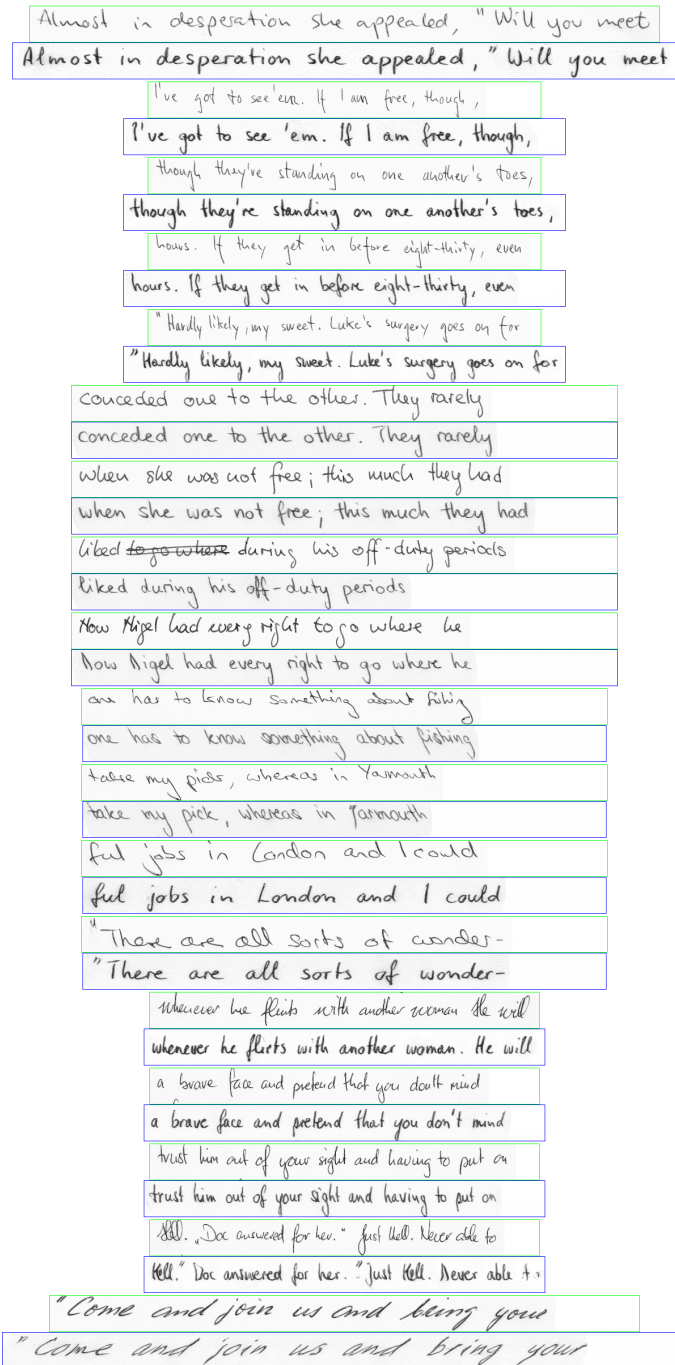 Almost in desperation she appealed, "Will you meet
Almost in desperation she appealed, "Will you meet
I've got to see 'em. If I am free, though,
I've got to see 'em. If I am free, though,
though they're standing on one another's toes,
though they're standing on one another's toes,
hours. If they get in before eight-thirty, even
hours. If they get in before eight-thirty, even
"Hardly likely, my sweet. Luke's surgery goes on for
"Hardly likely, my sweet. Luke's surgery goes on for
conceded one to the other. They rarely
conceded one to the other. They rarely
when she was not free; this much they had
when she was not free; this much they had
liked to go where during his off-duty periods
liked during his off-duty periods
Now Nigel had every right to go where he
Now Nigel had every right to go where he
one has to know something about fishing
one has to know something about fishing
take my pick, whereas in Yarmouth
take my pick, whereas in Yarmouth
ful jobs in London and I could
ful jobs in London and I could
"There are all sorts of wonder-
"There are all sorts of wonder-
whenever he flirts with another woman He will
whenever he flirts with another woman. He will
a brave face and pretend that you don't mind
a brave face and pretend that you don't mind
trust him out of your sight and having to put on
trust him out of your sight and having to put on
Hell. "Doc answered for her." Just Hell. Never able to
Hell." Doc answered for her. "Just Hell. Never able to
"Come and join us and bring your
"Come and join us and bring your